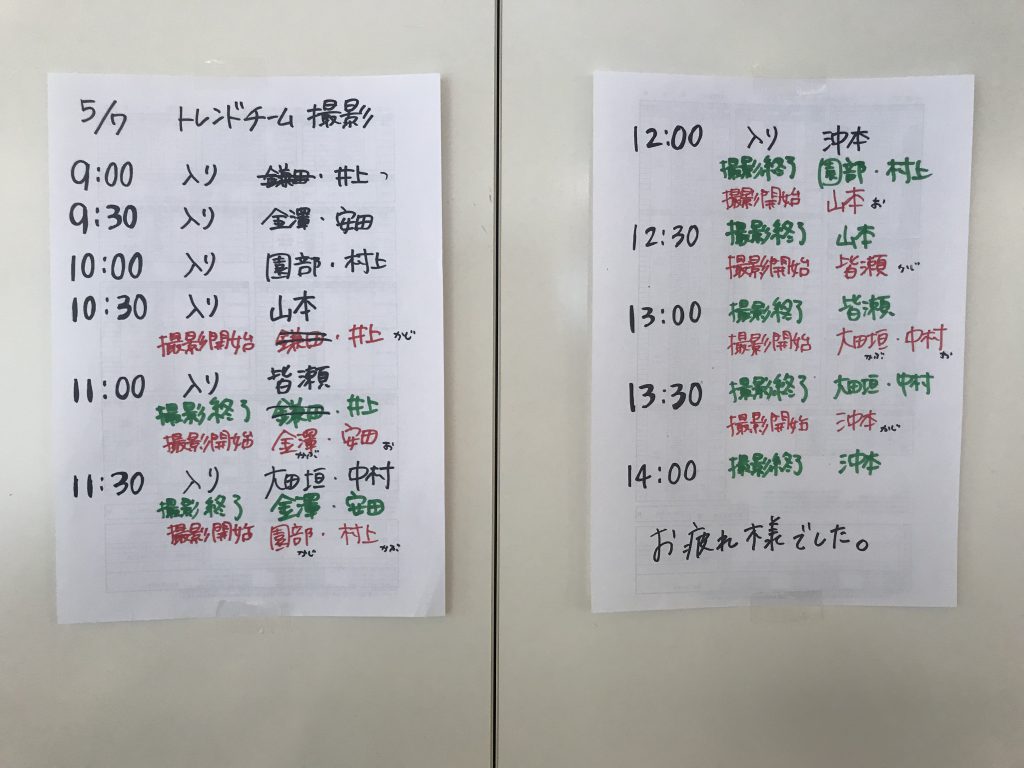 5/7 トレンドチーム 撮影
9:00 入り 鎌田・井上 つ
9:30 入り 金澤・安田
10:00 入り 園部・村上
10:30 入り 山本
撮影開始 鎌田・井上 かじ
11:00 入り 皆瀬
撮影終了 鎌田・井上
撮影開始 金澤・安田 お
かぶ
11:30 入り 大田垣・中村
撮影終了 金澤・安田
撮影開始 園部・村上 かぶ
かじ
12:00 入り 沖本
撮影終了 園部・村上
撮影開始 山本 お
12:30 撮影終了 山本
撮影開始 皆瀬 かじ
13:00 撮影終了 皆瀬
撮影開始 大田垣・中村
かぶ お
13:30 撮影終了 大田垣・中村
撮影開始 沖本 かじ
14:00 撮影終了 沖本
お疲れ様でした。